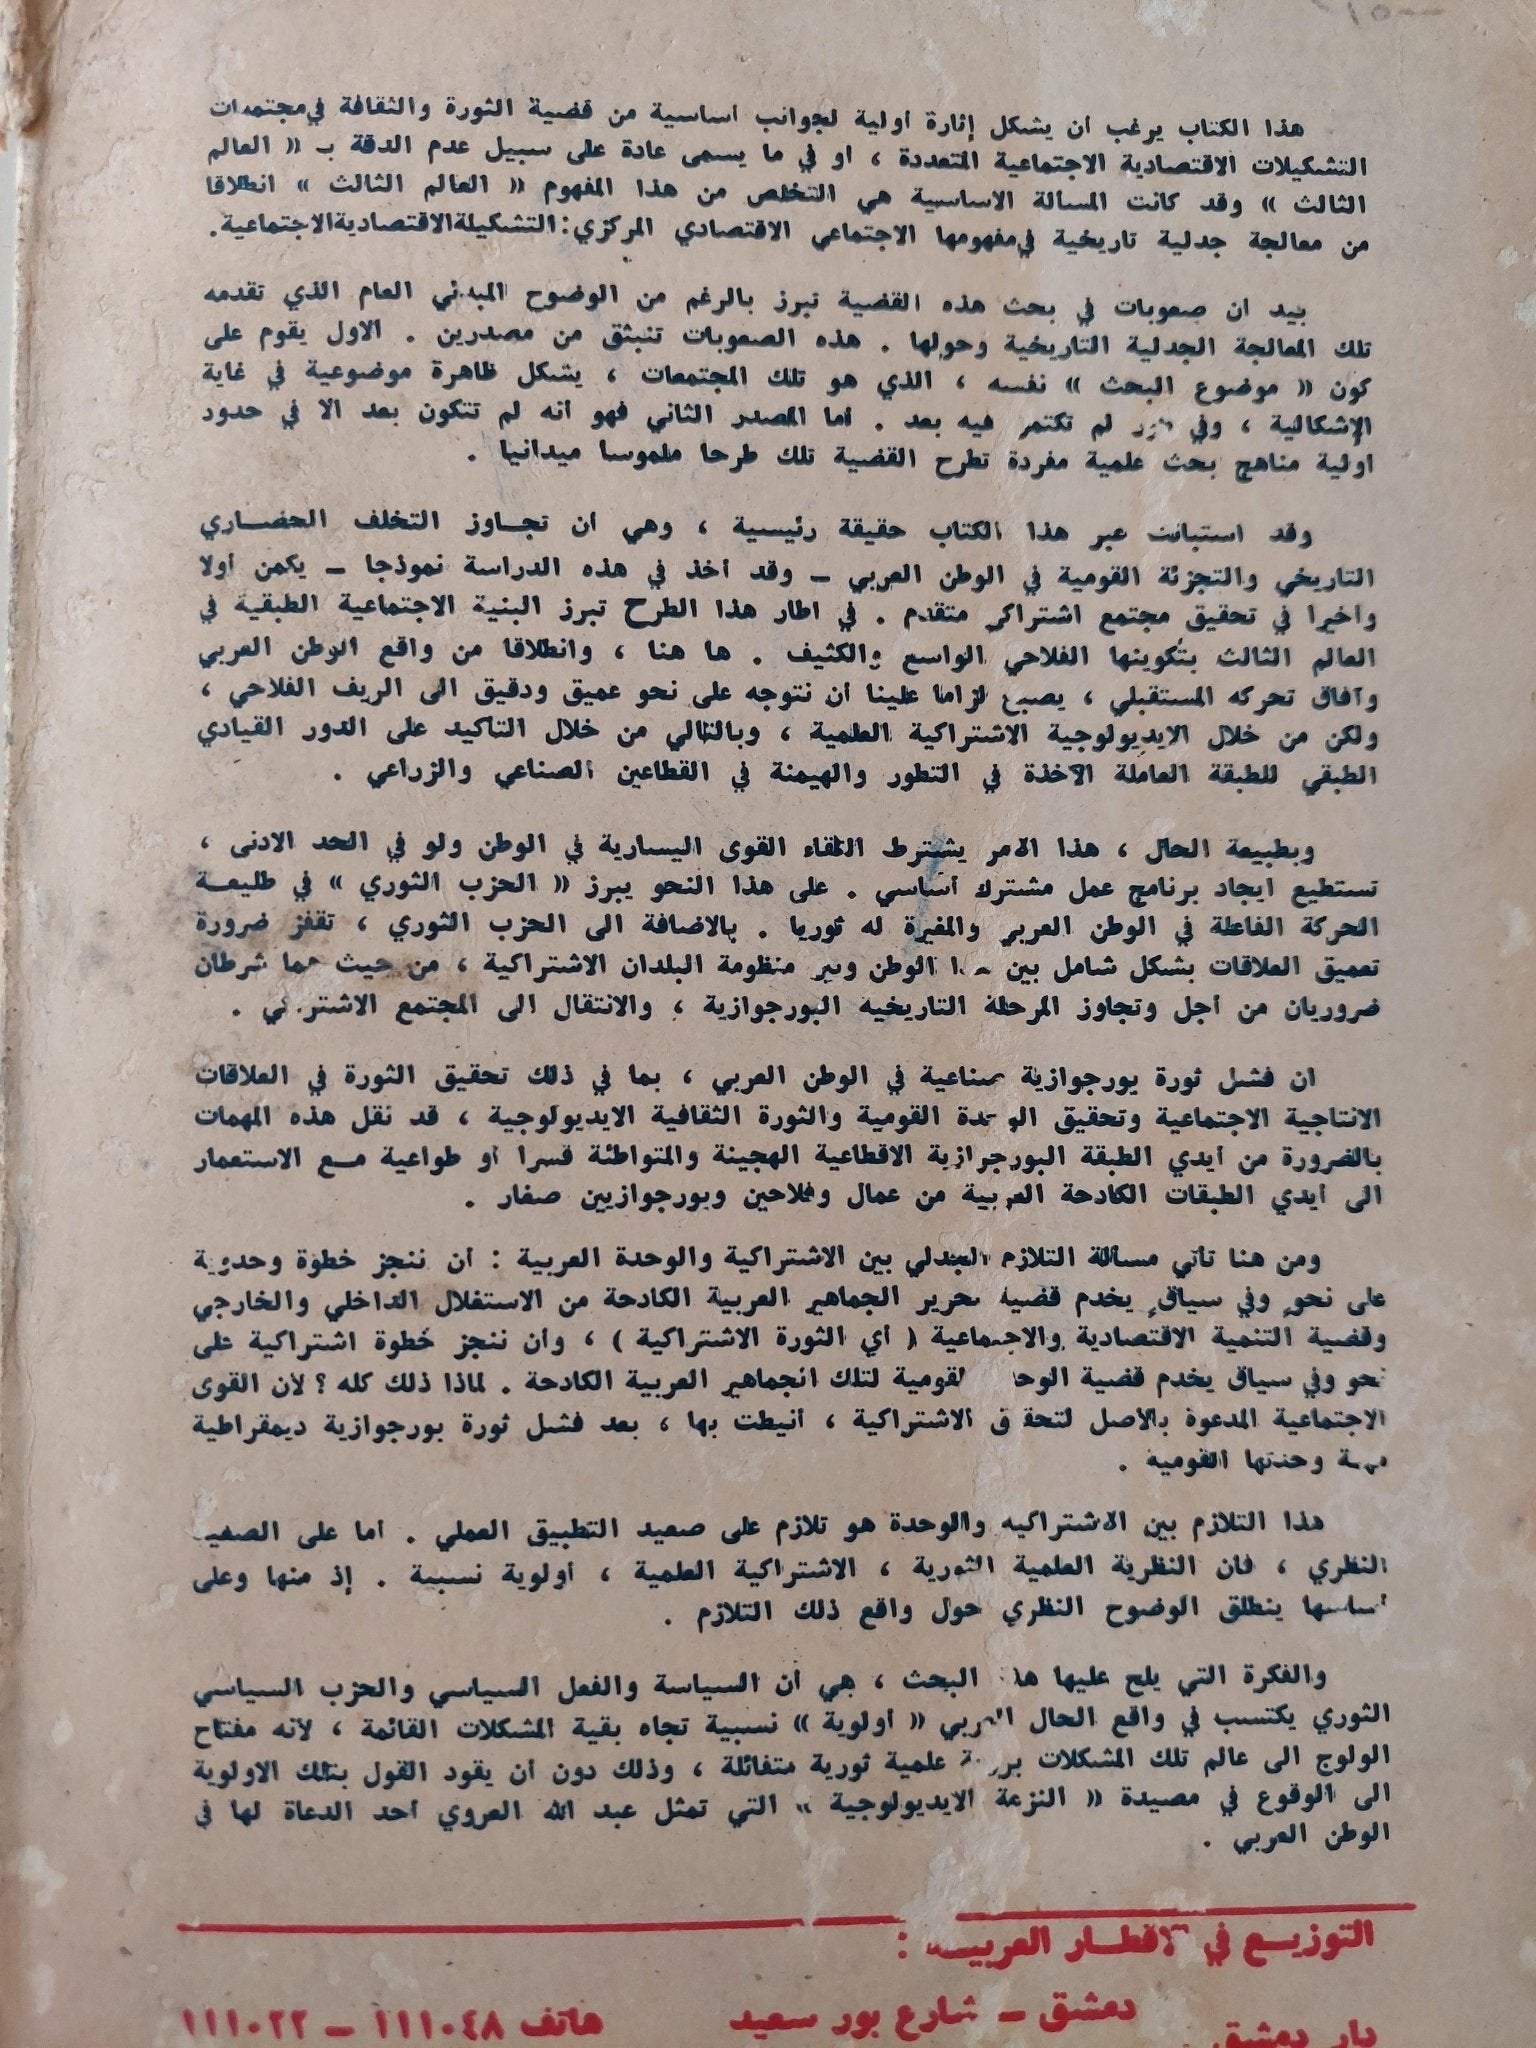 هذا الكتاب يرغب أن يشكل إثارة أولية لجوانب أساسية من قضية الثورة والثقافة في مجتمعات
التشكيلات الاقتصادية الاجتماعية المتعددة ، او في ما يسمى عادة على سبيل عدم الدقة بـ « العالم
الثالث » وقد كانت المسألة الاساسية هي التخلص من هذا المفهوم « العالم الثالث » انطلاقا
من معالجة جدلية تاريخية في مفهومها الاجتماعي الاقتصادي المركزي : التشكيلة الاقتصادية الاجتماعية .
بيد ان صعوبات في بحث هذه القضية تبرز بالرغم من الوضوح المبدئي العام الذي تقدمه
تلك المعالجة الجدلية التاريخية وحولها . هذه الصعوبات تنبثق من مصدرين . الاول يقوم على
كون « موضوع البحث » نفسه ، الذي هو تلك المجتمعات ، يشكل ظاهرة موضوعية في غاية
الإشكالية ، وفي لم تكتمل فيه بعد . أما المصدر الثاني فهو أنه لم تتكون بعد الا في حدود
أولية مناهج بحث علمية مفردة تطرح القضية تلك طرحا ملموسا ميدانيا .
وقد استبانت عبر هذا الكتاب حقيقة رئيسية ، وهي أن تجـاوز التخلف الحضـاري
التاريخي والتجزئة القومية في الوطن العربي ـ وقد أخذ في هذه الدراسة نموذجا ـ يكمن أولا
وأخيرا في تحقيق مجتمع اشتراكي متقدم . في اطار هذا الطرح تبرز البنية الاجتماعية الطبقية في
العالم الثالث بتكوينها الفلاحي الواسع والكثيف . ها هنا ، وانطلاقا من واقع الوطن العربي
وآفاق تحركه المستقبلي ، يصبح لزاما علينا أن نتوجه على نحو عميق ودقيق الى الريف الفلاحي ،
ولكن من خلال الايديولوجية الاشتراكية العلمية ، وبالتالي من خلال التأكيد على الدور القيادي
الطبقي للطبقة العاملة الآخذة في التطور والهيمنة في القطاعين الصناعي والزراعي .
وبطبيعة الحال ، هذا الأمر يشترط التقاء القوى اليسارية في الوطن ولو في الحد الادنى ،
تستطيع ايجاد برنامج عمل مشترك أساسي . على هذا النحو يبرز « الحزب الثوري » في طليعـة
الحركة الفاعلة في الوطن العربي والمغيرة له ثوريا . بالاضافة الى الحزب الثوري ، تقفز ضرورة
تعميق العلاقات بشكل شامل بين هذا الوطن وبين منظومة البلدان الاشتراكية ، من حيث هما شرطان
ضروريان من أجل وتجاوز المرحلة التاريخية البورجوازية ، والانتقال الى المجتمع الاشتراكي .
ان فشل ثورة بورجوازية صناعية في الوطن العربي ، بما في ذلك تحقيق الثورة في العلاقات
الانتاجية الاجتماعية وتحقيق الوحدة القومية والثورة الثقافية الايديولوجية ، قد نقل هذه المهمات
بالضرورة من أيدي الطبقة البورجوازية الاقطاعية الهجينة والمتواطئة قسرا أو طواعية مـع الاستعمار
الى أيدي الطبقات الكادحة العربية من عمال وفلاحين وبورجوازيين صغار .
ومن هنا تأتي مسألة التلازم الجدلي بين الاشتراكية والوحدة العربية : أن ننجز خطوة وحدوية
على نحوٍ وفي سياقٍ يخدم قضية تحرير الجماهير العربية الكادحة من الاستغلال الداخلي والخارجي
وقضية التنمية الاقتصادية والاجتماعية ( أي الثورة الاشتراكية ) ، وأن ننجز خطوة اشتراكية على
نحو وفي سياق يخدم قضية الوحدة القومية لتلك الجماهير العربية الكادحة . لماذا ذلك كله ؟ لأن القوى
الاجتماعية المدعوة بالأصل لتحقيق الاشتراكية ، أنيطت بها ، بعد فشل ثورة بورجوازية ديمقراطية
مهمة وحدتها القومية .
هذا التلازم بين الاشتراكية والوحدة هو تلازم على صعيد التطبيق العملي . أما على الصعيد
النظري ، فان النظرية العلمية الثورية ، الاشتراكية العلمية ، أولوية نسبية . إذ منها وعلى
أساسها ينطلق الوضوح النظري حول واقع ذلك التلازم .
والفكرة التي يلح عليها هذا البحث ، هي أن السياسة والفعل السياسي والحزب السياسي
الثوري يكتسب في واقع الحال العربي « أولوية » نسبية تجاه بقية المشكلات القائمة ، لأنه مفتاح
الولوج الى عالم تلك المشكلات علمية ثورية متفائلة ، وذلك دون أن يقود القول بتلك الاولوية
الى الوقوع في مصيدة « النزعة الايديولوجية » التي تمثل عبد الله العروي أحد الدعاة لها في
الوطن العربي .
التوزيـع في الاقطـار العربيـة :
دار دمشق . دمشق ـ شارع بور سعيد هاتف ١١١٠٤٨ ـ ١١١٠٢٢